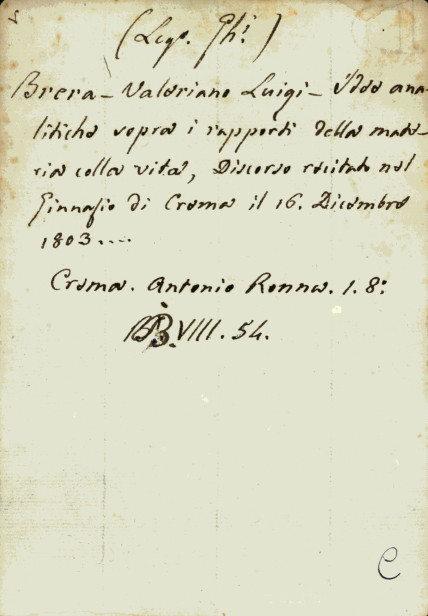 (Leg. Ghi)
Brera - Valeriano Luigi - Idee ana-
litiche sopra i rapporti della mate-
ria colla vita, Discorso recitato nel
Ginnasio di Crema il 16. Dicembre
1803....
Crema. Antonio Ronna. 1. 8:
B.VIII.54.
C